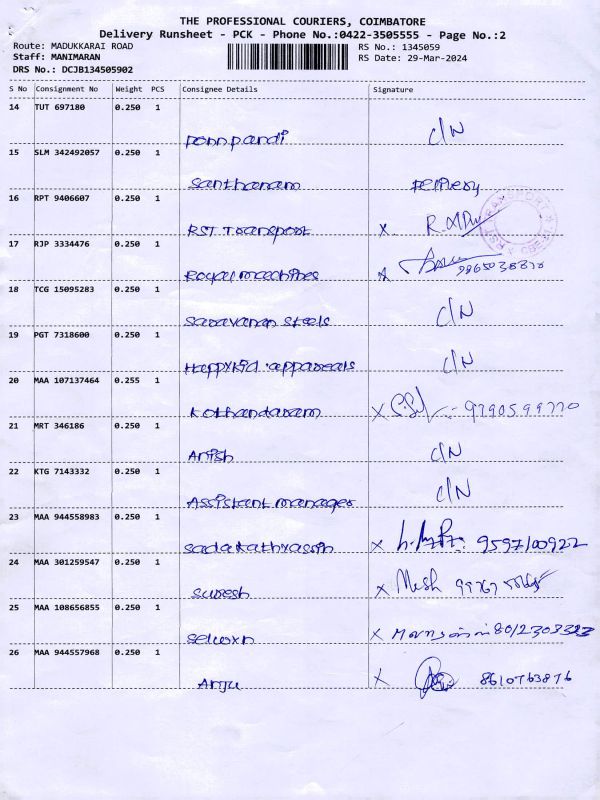 THE PROFESSIONAL COURIERS, COIMBATORE
Delivery Runsheet - PCK - Phone No.:0422-3505555 - Page No.:2
Route: MADUKKARAI ROAD RS No.: 1345059
Staff: MANIMARAN RS Date: 29-Mar-2024
DRS No.: DCJB134505902
S No Consignment No Weight PCS Consignee Details Signature
14 TUT 697180 0.250 1
Ponnpandi C/N
15 SLM 342492057 0.250 1
Santhanam
16 RPT 9406607 0.250 1
RST Transport X
17 RJP 3334476 0.250 1
Royal machines
18 TCG 15095283 0.250 1
Saravanan steels C/N
19 PGT 7318600 0.250 1
Happykid appareals C/N
20 MAA 107137464 0.255 1
Kothandaram X
21 MRT 346186 0.250 1
Anish C/N
22 KTG 7143332 0.250 1
Assistant manager C/N
23 MAA 944558983 0.250 1
Sadakathyassin X 9597100922
24 MAA 301259547 0.250 1
Suresh X
25 MAA 108656855 0.250 1
X
26 MAA 944557968 0.250 1
Anju X 8610763876